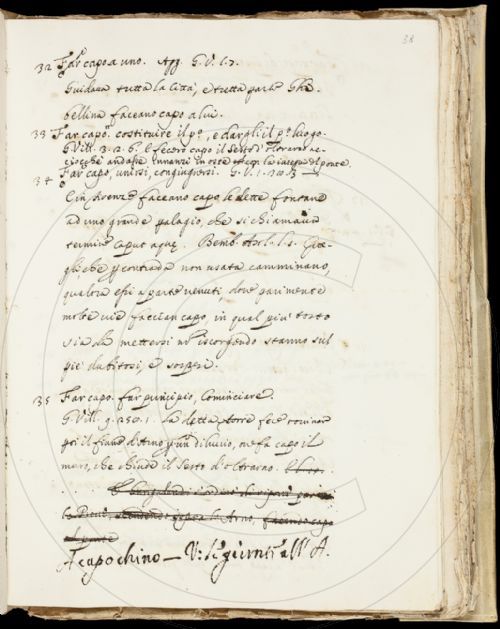 38
32 Far capo a uno. Agg. G. V. l. 7.
Guidava tutta la Città, e tutta parte Ghi-
bellina faceano capo a lui.
33 Far capo, costituire il p.º, e dargli il p.º luogo.
G. Vill. 3. 2. 6. E fecero capo il Sesto d'Oltrarno ac-
ciocchè andasse innanzi in oste
34 Far capo, unirsi, congiugnersi. G. V. 1.
E in Firenze faceano capo le dette fontane
ad uno grande palagio, che si chiamava
termine caput aquę. Bemb. Asol. l. 1.
che contrada non usata camminano,
qualora essi a parte venuti, dove parimente
molte vie faccian capo, in qual più tosto
sia da mettersi non iscorgendo stanno sul
piè dubitosi, e sospesi.
35 Far capo. far principio, Cominciare.
G. Vill. 9. La detta torre fece rovinar
poi il fiume d'Arno p un diluvio, ove fa capo il
muro, che chiude il Sesto d'Oltrarno.
A capo chino — V: le giunte all'A.